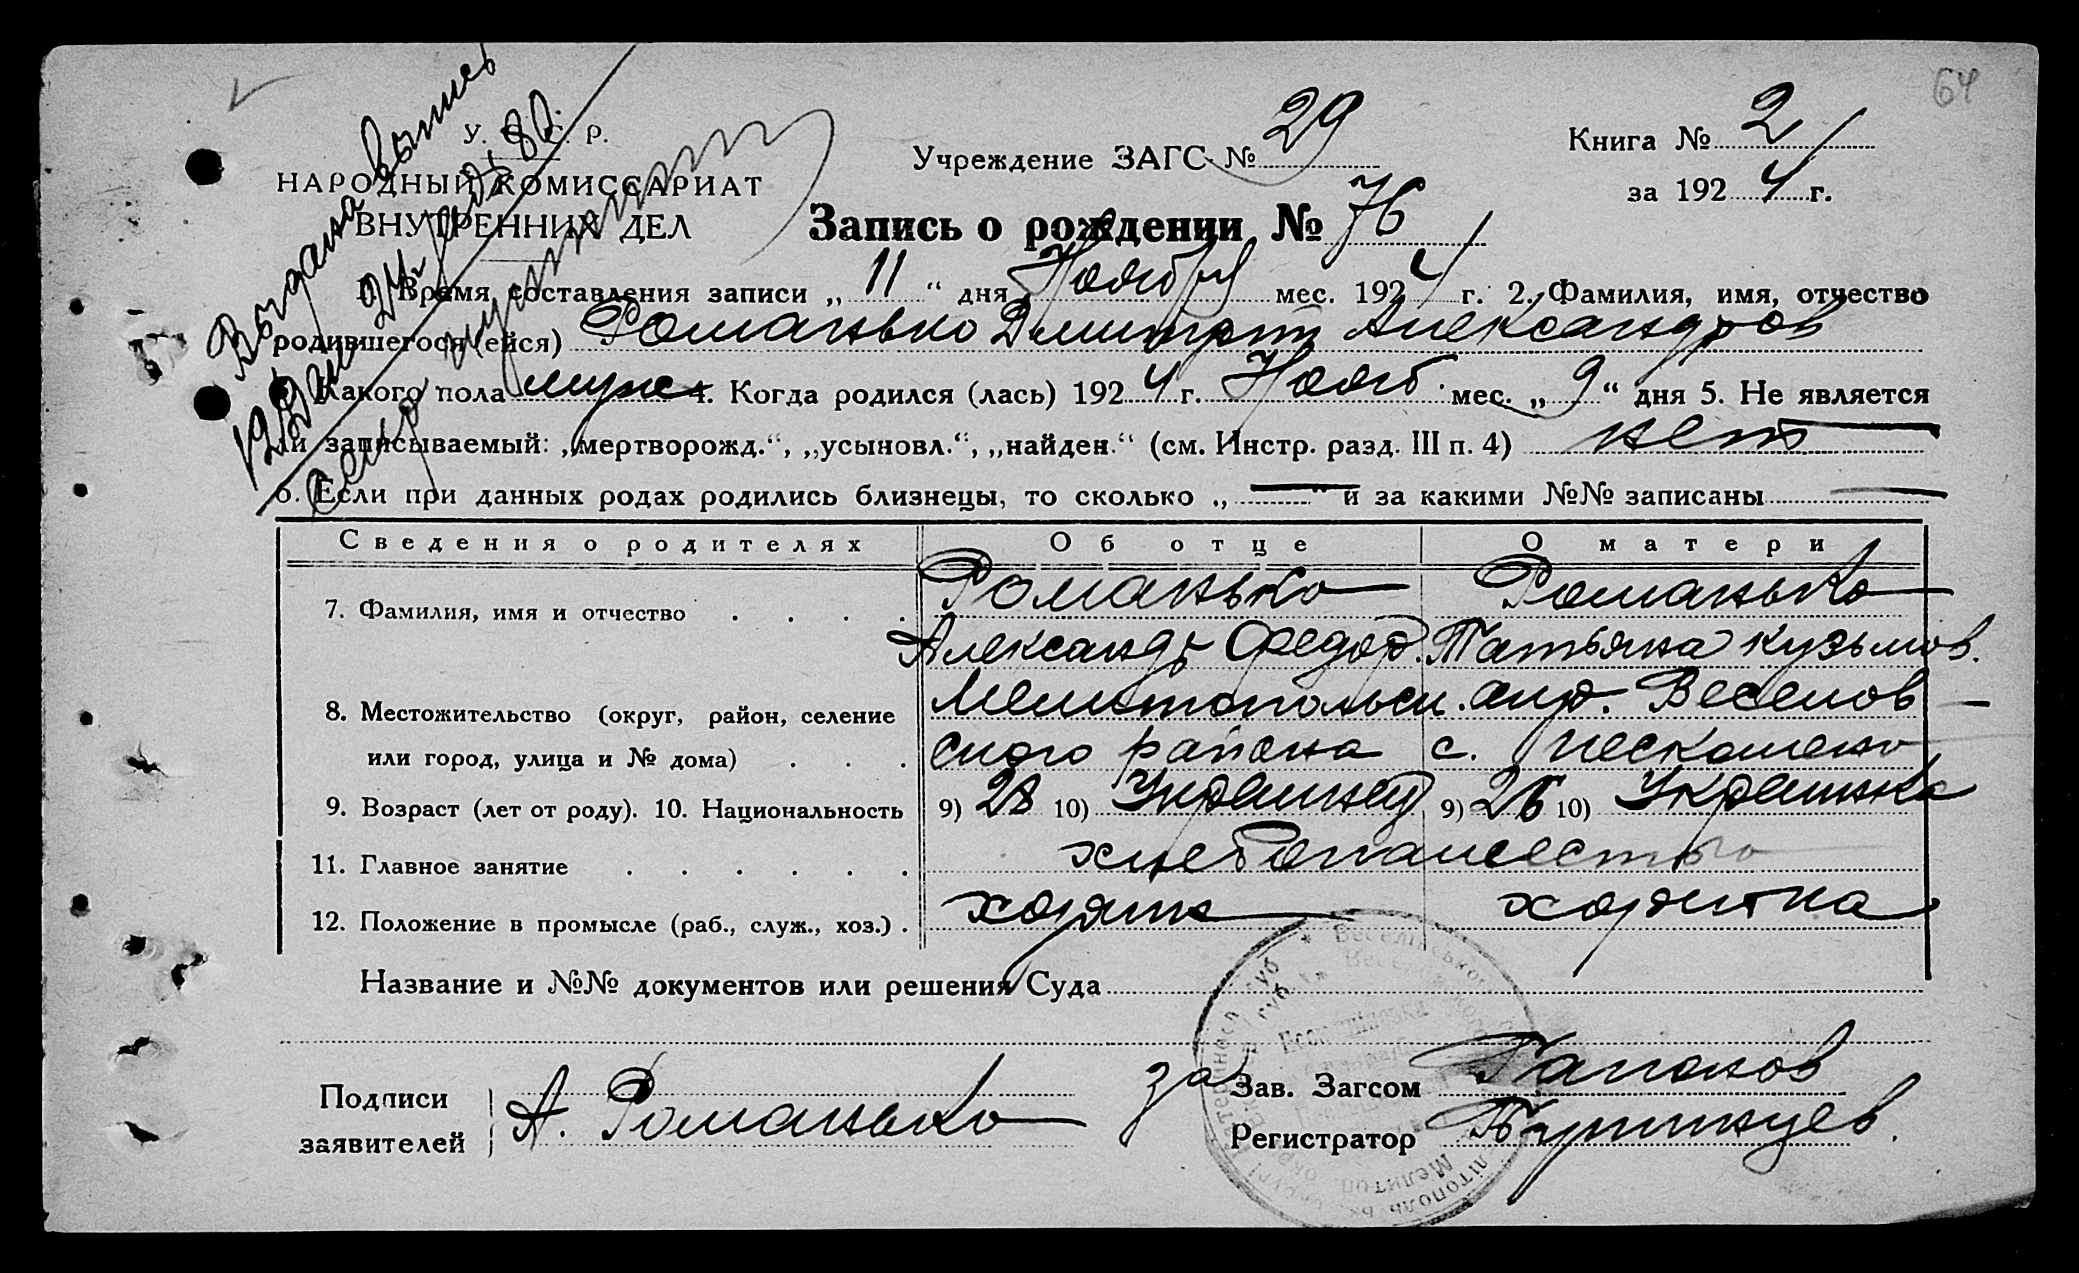 64
У. С. С. Р.
НАРОДНЫЙ КОМИССАРИАТ
ВНУТРЕННИХ ДЕЛ
Учреждение ЗАГС № 29
Книга № 2
за 1924 г.
Запись о рождении № 76
1. Время составления записи „ 11 “ дня Ноября мес. 1924 г. 2. Фамилия, имя, отчество
родившегося (ейся) Романько Дмитрий Александров
3. Какого пола муж 4. Когда родился (лась) 1924 г. Нояб. мес. „ 9 “ дня 5. Не является
ли записываемый: „мертворожд.“, „усыновл.“, „найден.“ (см. Инстр. разд. III п. 4) нет
6. Если при данных родах родились близнецы, то сколько „ — “ и за какими №№ записаны —
Сведения о родителях Об отце О матери
7. Фамилия, имя и отчество Романько Романько
Александр Федор. Татьяна Кузьмов.
8. Местожительство (округ, район, селение Мелитопольск. окр. Веселов-
или город, улица и № дома) ского района с.
9. Возраст (лет от роду). 10. Национальность 9) 28 10) Украинец 9) 26 10) Украинка
11. Главное занятие хлебопашество
12. Положение в промысле (раб., служ., хоз.) хозяин хозяйка
Название и №№ документов или решения Суда
Подписи
заявителей А. Романько
за Зав. Загсом Гапонов
Регистратор
выпись